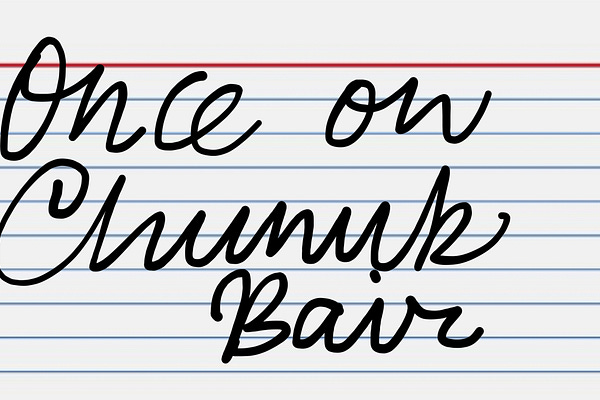 Once on
Chunuk
Bair